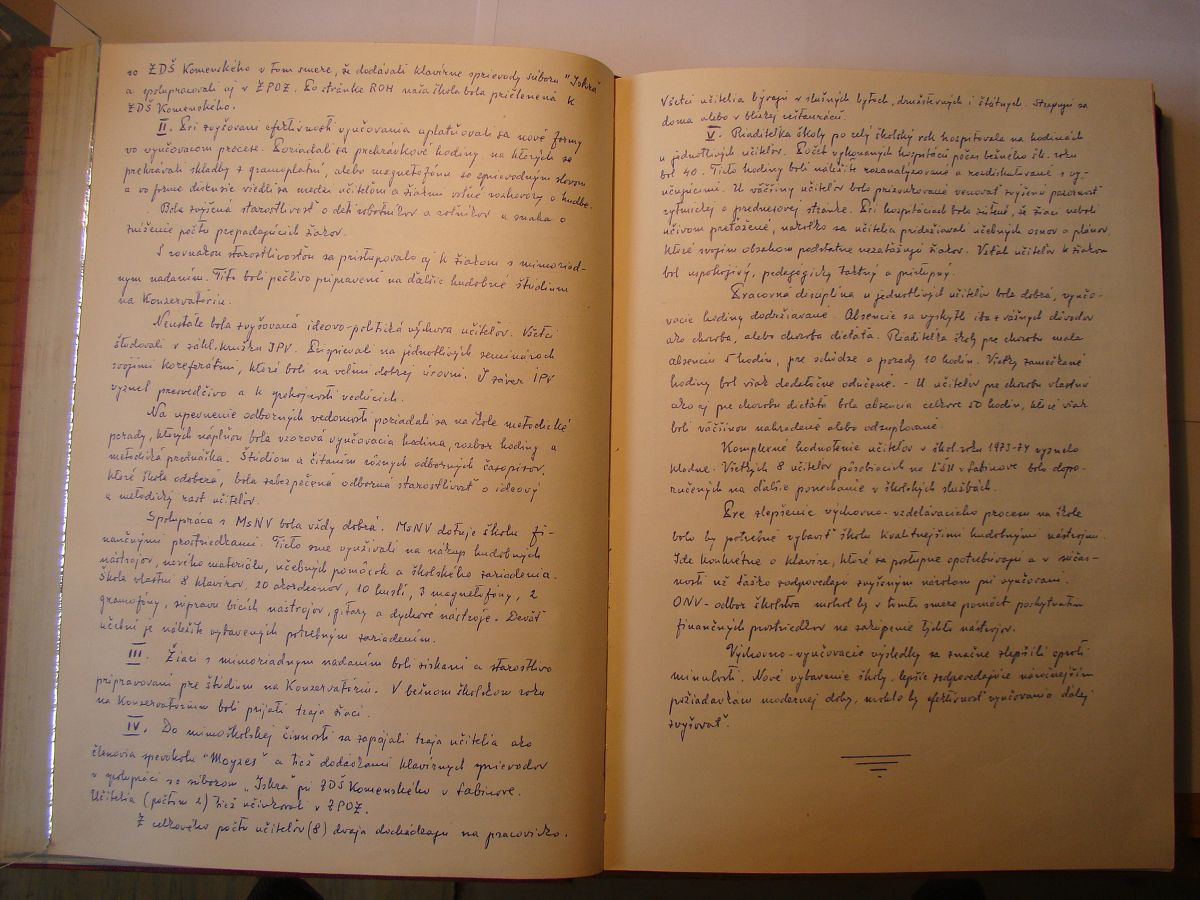 so ZDŠ Komenského v tom smere, že dodávali klavírne sprievody súboru "Iskra"
a spolupracovali aj v ZPOZ. Po stránke ROH naša škola bola pričlenená k
ZDŠ Komenského.
II. Pri zvyšovaní efektívnosti vyučovania uplatňovali sa nové formy
vo vyučovacom procese. Poriadali sa prehrávkové hodiny na ktorých sa
prehrávali skladby z gramoplatní, alebo magnetofónu so sprievodným slovom
a vo forme diskusie viedli sa medzi učiteľom a žiakmi voľné rozhovory o hudbe.
Bola zvýšená starostlivosť o deti robotníkov a roľníkov a snaha o
zníženie počtu prepadajúcich žiakov.
S rovnakou starostlivosťou sa pristupovalo aj k žiakom s mimoriad-
nym nadaním. Títo boli pečlivo pripravení na ďalšie hudobné štúdium
na Konzervatóriu.
Neustále bola zvyšovaná ideovo-politická výchova učiteľov. Všetci
študovali v zákl. krúžku IPV. Prispievali na jednotlivých seminároch
svojimi koreferátmi, ktoré boli na veľmi dobrej úrovni. I záver IPV
vyznel presvedčivo a k spokojnosti vedúcich.
Na upevnenie odborných vedomostí poriadali sa na škole metodické
porady, ktorých náplňou bola vzorová vyučovacia hodina, rozbor hodiny a
metodická prednáška. Štúdiom a čítaním rôznych odborných časopisov,
ktoré škola odoberá, bola zabezpečená odborná starostlivosť o ideový
a metodický rast učiteľov.
Spolupráca s MsNV bola vždy dobrá. MsNV dotuje školu fi-
nančnými prostriedkami. Tieto sme využívali na nákup hudobných
nástrojov, nového materiálu, učebných pomôcok a školského zariadenia.
Škola vlastní 8 klavírov, 20 akordeonov, 10 huslí, 3 magnetofóny, 2
gramofóny, súpravu bicích nástrojov, gitary a dychové nástroje. Deväť
učební je náležite vybavených potrebným zariadením.
III. Žiaci s mimoriadnym nadaním boli získaní a starostlivo
pripravovaní pre štúdium na Konzervatóriu. V bežnom školskom roku
na Konzervatórium boli prijatí traja žiaci.
IV. Do mimoškolskej činnosti sa zapájali traja učitelia ako
členovia spevokolu "Moyzes" a tiež dodávkami klavírnych sprievodov
v spolupráci so súborom "Iskra pri ZDŠ Komenského v Sabinove.
Učitelia (počtom 2) tiež účinkovali v ZPOZ.
Z celkového počtu učiteľov (8) dvaja dochádzajú na pracovisko.
Všetci učitelia bývajú v slušných bytoch, družstevných i štátnych. Stravujú sa
doma alebo v blízkej reštaurácii.
V. Riaditeľka školy po celý školský rok hospitovala na hodinách
u jednotlivých učiteľov. Počet vykonaných hospitácií počas bežného šk. roku
bol 40. Tieto hodiny boli náležite rozanalyzované a rozdiskutované s vy-
učujúcimi. U väčšiny učiteľov bolo prízvukované venovať zvýšenú pozornosť
rytmickej a prednesovej stránke. Pri hospitáciách bolo zistené, že žiaci neboli
učivom preťažené, nakoľko sa učitelia pridržiavali učebných osnov a plánov,
ktoré svojim obsahom podstatne nezaťažujú žiakov. Vzťah učiteľov k žiakom
bol uspokojivý, pedagogicky taktný a prístupný.
Pracovná disciplína u jednotlivých učiteľov bola dobrá, vyučo-
vacie hodiny dodržiavané. Absencie sa vyskytli iba z vážnych dôvodov
ako choroba, alebo choroba dieťaťa. Riaditeľka školy pre chorobu mala
absenciu 5 hodín, pre schôdze a porady 10 hodín. Všetky zameškané
hodiny boli však dodatočne odučené. - U učiteľov pre chorobu vlastnú
ako aj pre chorobu dieťaťa bola absencia celkove 50 hodín, ktoré však
boli väčšinou nahradené alebo odsuplované.
Komplexné hodnotenie učiteľov v škol. roku 1973-74 vyznelo
kladne. Všetkých 8 učiteľov pôsobiacich na ĽŠU v Sabinove bolo dopo-
ručených na ďalšie ponechanie v školských službách.
Pre zlepšenie výchovno-vzdelávacieho procesu na škole
bolo by potrebné vybaviť školu kvalitnejšími hudobnými nástrojmi.
Ide konkrétne o klavíre, ktoré sa postupne opotrebúvajú a v súčas-
nosti už ťažko zodpovedajú zvýšeným nárokom pri vyučovaní.
ONV - odbor školstva mohol by v tomto smere pomôcť poskytnutím
finančných prostriedkov na zakúpenie týchto nástrojov.
Výchovno-vyučovacie výsledky sa značne zlepšili oproti
minulosti. Nové vybavenie školy, lepšie zodpovedajúce náročnejším
požiadavkám modernej doby, mohlo by efektívnosť vyučovania ďalej
zvyšovať.